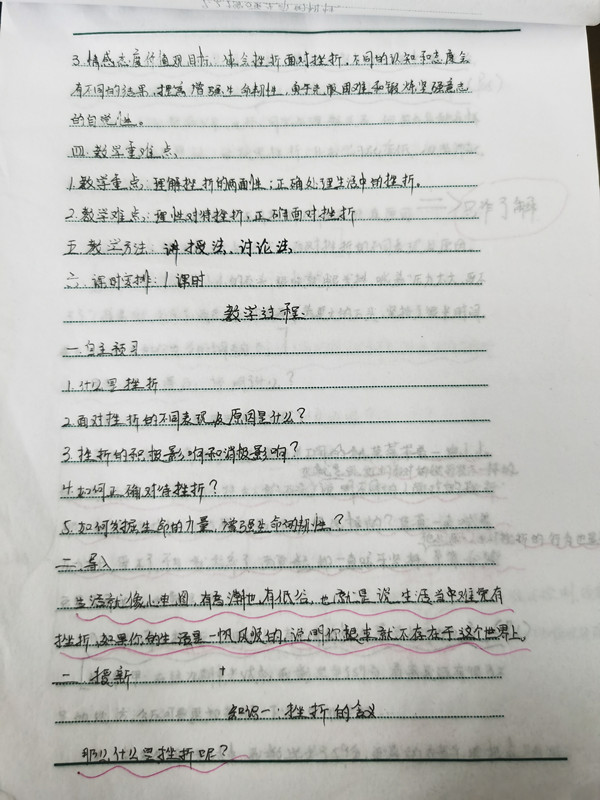 3. 情感态度价值观目标:体会挫折面对挫折,不同的认知和态度会
有不同的结果,提高增强生命韧性,勇于克服困难和锻炼坚强意志
的自觉性。
四.教学重难点
1.教学重点:理解挫折的两面性;正确处理生活中的挫折。
2.教学难点:理性对待挫折,正确面对挫折
五.教学方法:讲授法、讨论法
六.课时安排:1课时
教学过程
一.自主预习
1.什么是挫折
2.面对挫折的不同表现及原因是什么?
3.挫折的积极影响和消极影响?
4.如何正确对待挫折?
5.如何发掘生命的力量,增强生命的韧性?
二.导入
生活就像心电图,有高潮也有低谷,也就是说生活当中难免有
挫折,如果你的生活是一帆风顺的,说明你就不存在于这个世界上。
一 授新
知识一:挫折的含义
那么,什么是挫折呢?